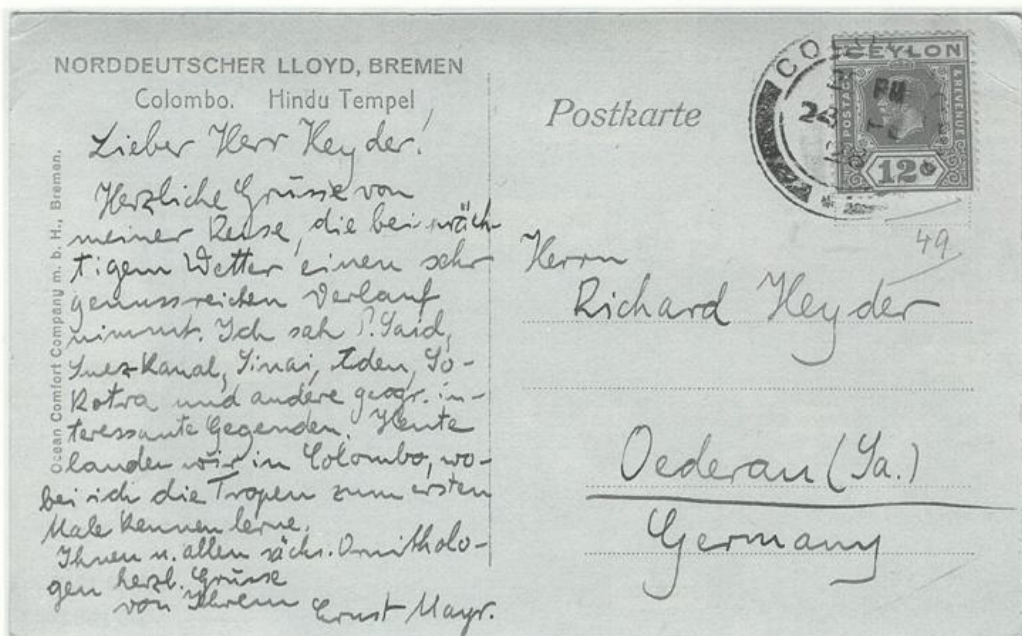 NORDDEUTSCHER LLOYD, BREMEN
Colombo. Hindu Tempel
Lieber Herr Heyder!
Herzliche Grüsse von
meiner Reise, die bei präch-
tigem Wetter einen sehr
genussreichen Verlauf
nimmt. Ich sah P. Said,
Suez-Kanal, Sinai, Aden, So-
kotra und andere geogr. in-
teressante Gegenden. Heute
landen wir in Colombo, wo-
bei ich die Tropen zum ersten
Male kennen lerne.
Ihnen u. allen sächs. Ornitholo-
gen herzl. Grüsse
von Ihrem Ernst Mayr.
Ocean Comfort Company m. b. H., Bremen.
Postkarte
CEYLON
POSTAGE
& REVENUE
12
PM
49
Herrn
Richard Heyder
Oederan (Sa.)
Germany